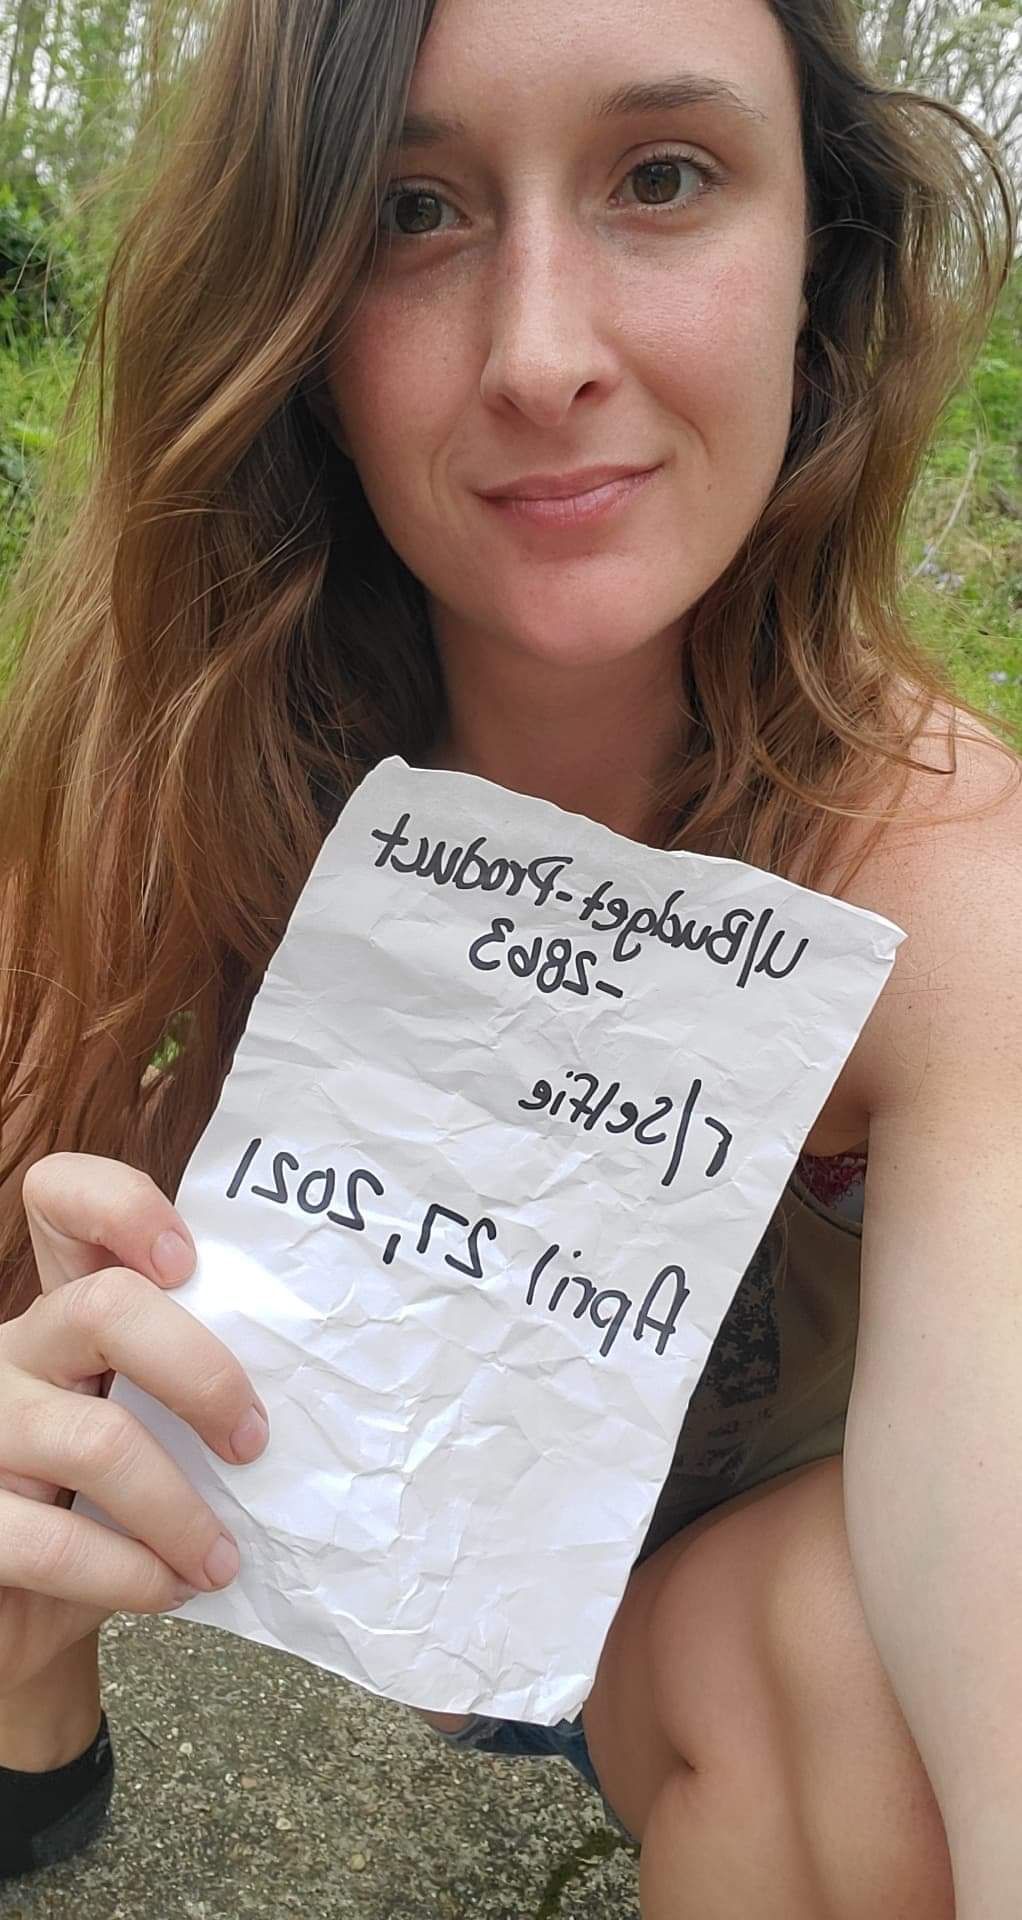 u/Budget-Product
-2863
r/Selfie
April 27, 2021